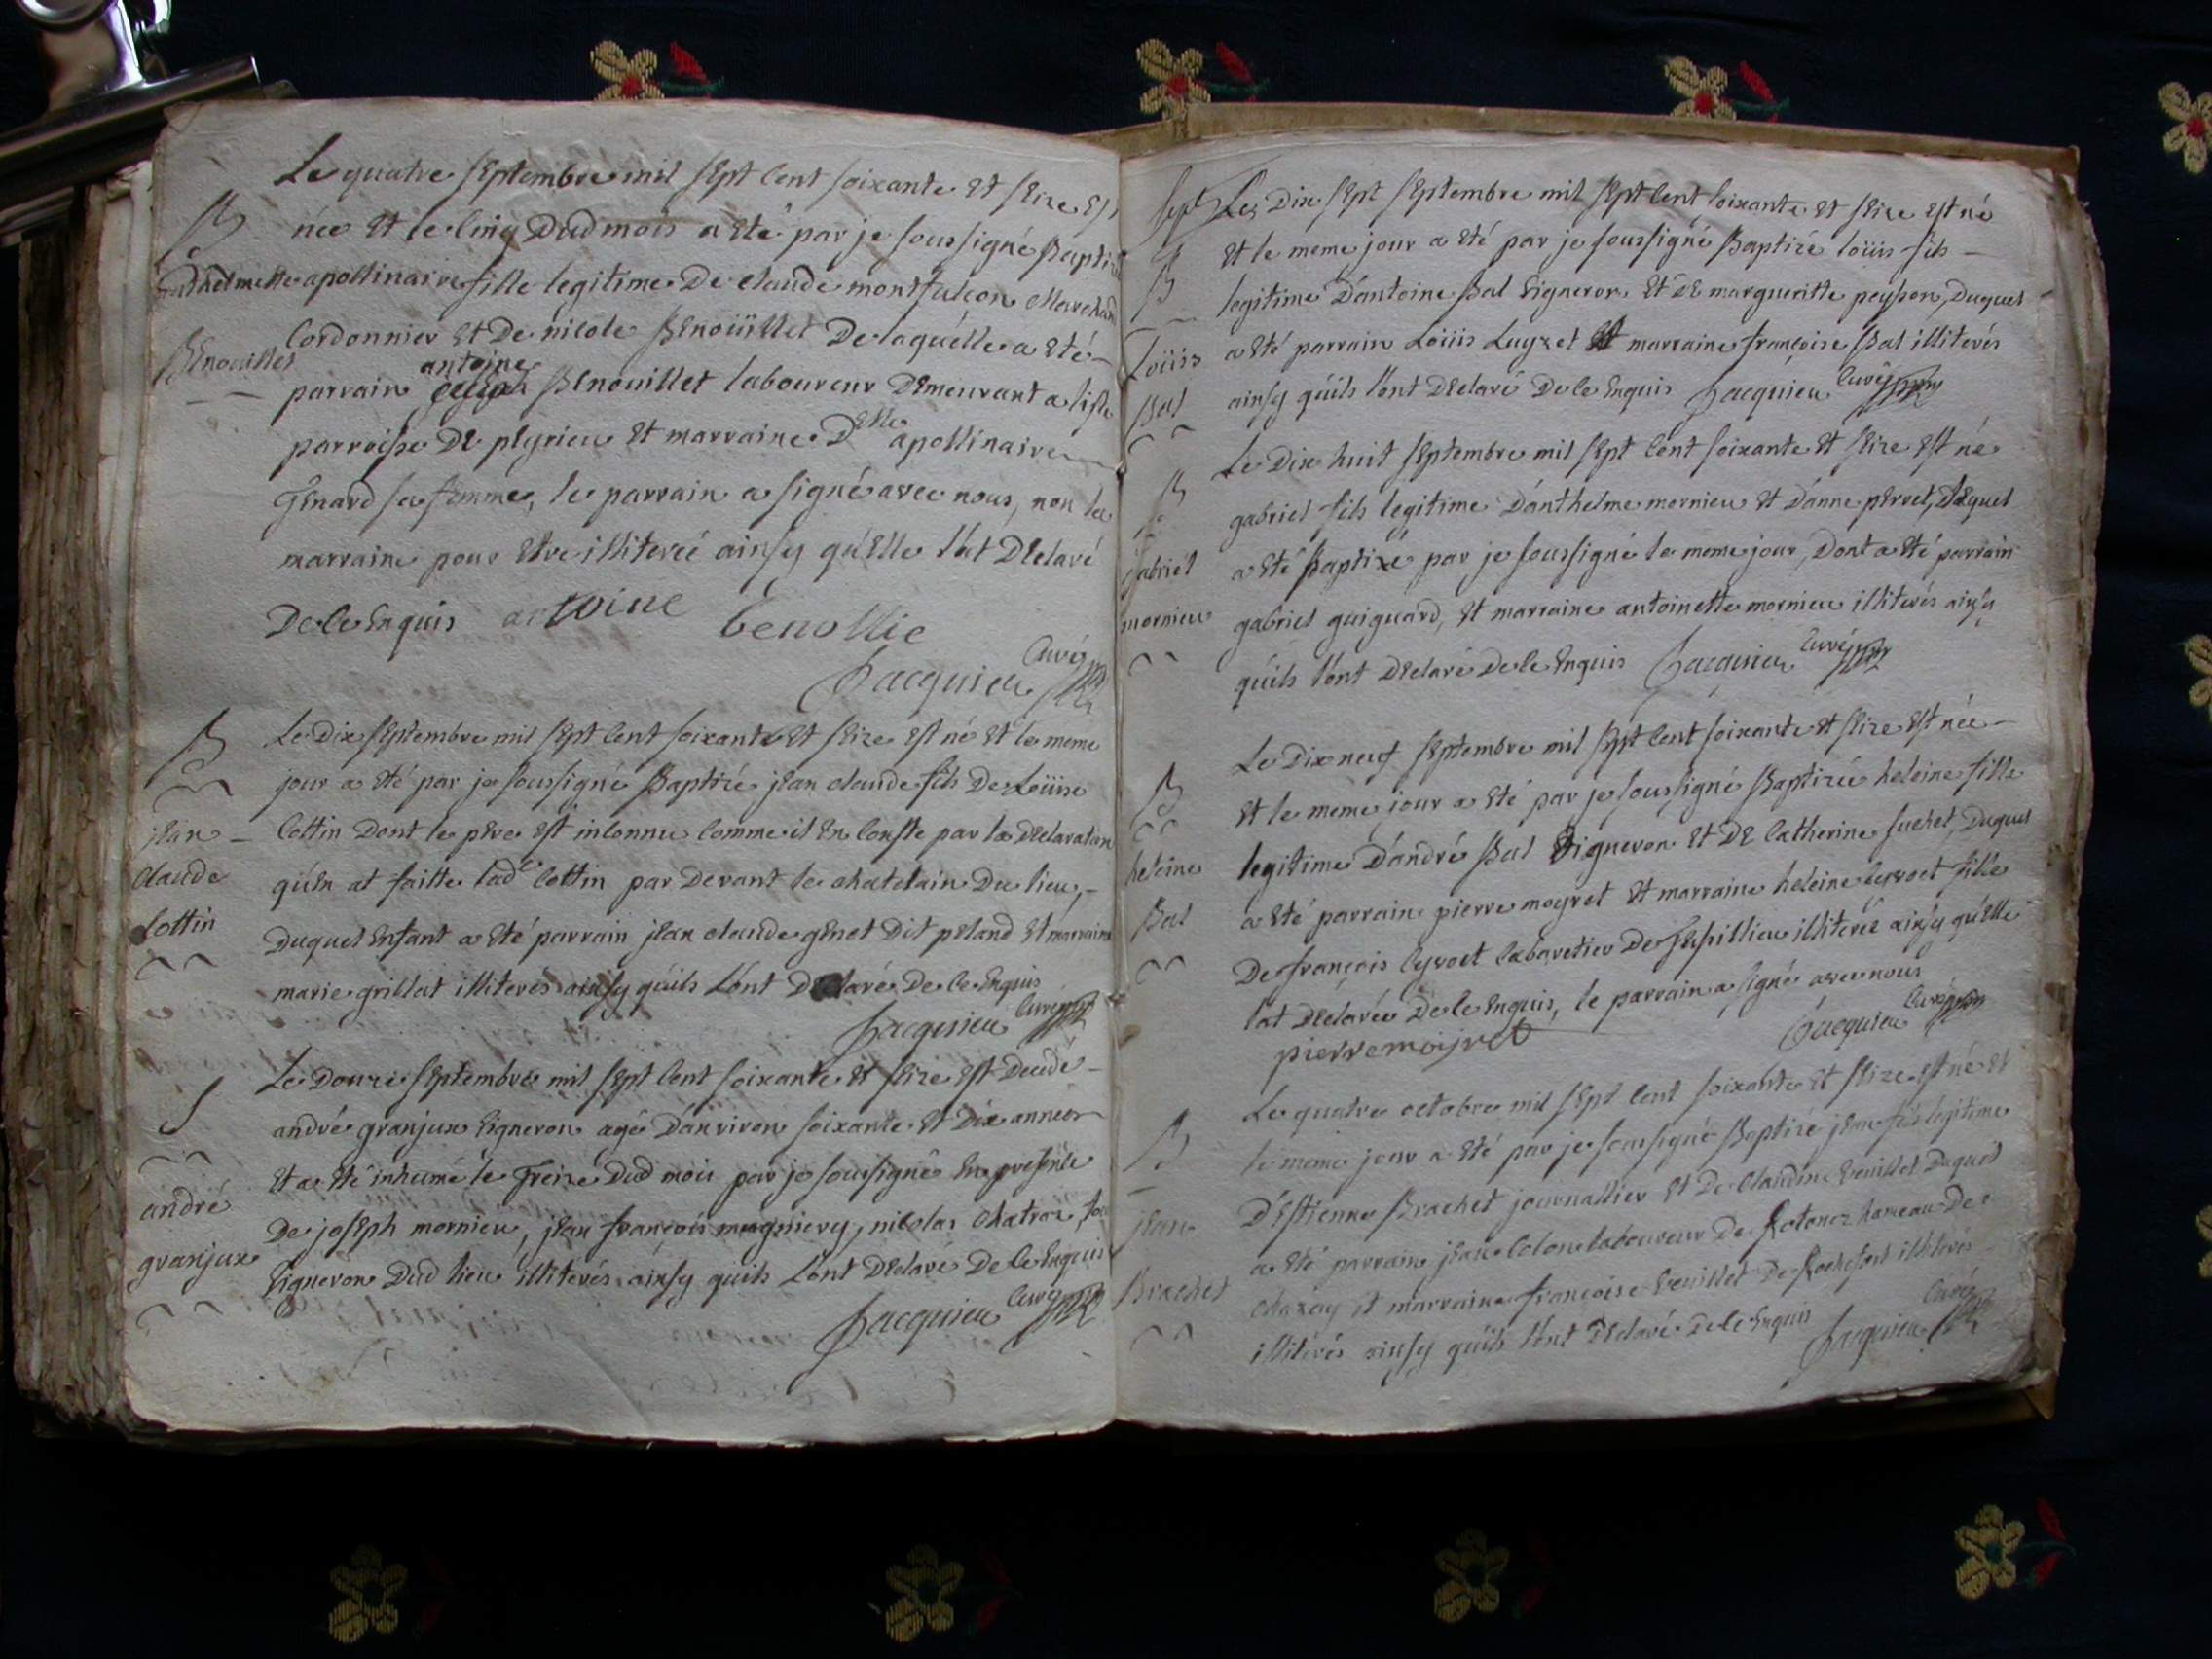 Le quatre septembre mil sept cent soixante et seize est
B
née et le cinq dud mois a été par je soussigné baptizé
anthelmette apollinaire fille legitime de claude montfalcon marchand
cordonnier et de nicole Benoüillet de laquélle a été
Benouillet
antoine
parrain Benouillet laboureur demeurant a lisle
parroisse de peyrieu et marraine Delle apollinaire
Genard sa femme, le parrain a signé avec nous, non la
marraine pour etre illiterée ainsy qu'elle l'at declaré
de ce enquis antoine benollie
Jacquieu curé
B
Le dix septembre mil sept cent soixante et seize est né et le meme
jour a été par je soussigné Baptizé jean claude fils de Loüise
jean
cottin dont le pere est inconnu comme il en conste par la declaration
claude
qu'en at faitte lade cottin par devant le chatelain du lieu,
cottin
duquel enfant a été parrain jean claude genet dit peland et marraine
marie grillat illiterés ainsy qu'ils l'ont declaré de ce enquis
Jacquieu curé
S
Le douze septembre mil sept cent soixante et seize est decedé
andré granjux vigneron agé d'anviron soixante et dix annees
et a été inhumé le treize dud mois par je soussigné en presence
andré
de joseph mornieu, jean françois mugniery, nicolas chatroz
granjux
vigneron dud lieu illiterés ainsy quils l'ont declaré de ce enquis
Jacquieu curé
sept Le dix sept septembre mil sept cent soixante et seize est né
et le meme jour a été par je soussigné Baptizé loüis fils
B
legitime d'antoine Bal vigneron et de margueritte peysson, duquel
Loüis
a été parrain Loüis Luyzet et marraine françoise Bal illiterés
Bal
ainsy qu'ils l'ont declaré de ce enquis Jacquieu curé
Le dix huit septembre mil sept cent soixante et seize est né
B
gabriel fils legitime d'anthelme mornieu et d'anne pervet, lequel
gabriel
a été baptizé par je soussigné le meme jour, dont a été parrain
mornieu
gabriel guiguard, et marraine antoinette mornieu illiterés ainsy
qu'ils l'ont declaré de ce enquis Jacquieu curé
Le dix neuf septembre mil sept cent soixante et seize est née
B
et le meme jour a été par je soussigné Baptizée heleine fille
heleine
legitime d'andré Bal vigneron et de catherine suchet, duquel
Bal
a été parrain pierre moyret et marraine heleine cyvoct fille
de françois cyvoct cabaretier de illiterée ainsy qu'elle
l'at declarée de ce enquis, le parrain a signé avec nous
pierre moijret Jacquieu curé
Le quatre octobre mil sept cent soixante et seize est né et
B
le meme jour a été par je soussigné Baptizé jean fils legitime
d'estienne Brachet journallier et de claudine veuillet duquel
jean
a été parrain jean colon laboureur de Rotonoz hameau de
Brachet
chazey et marraine françoise veuillet de Rochefort illiterés
illiterés ainsy qu'ils l'ont declaré de ce enquis Jacquieu curé